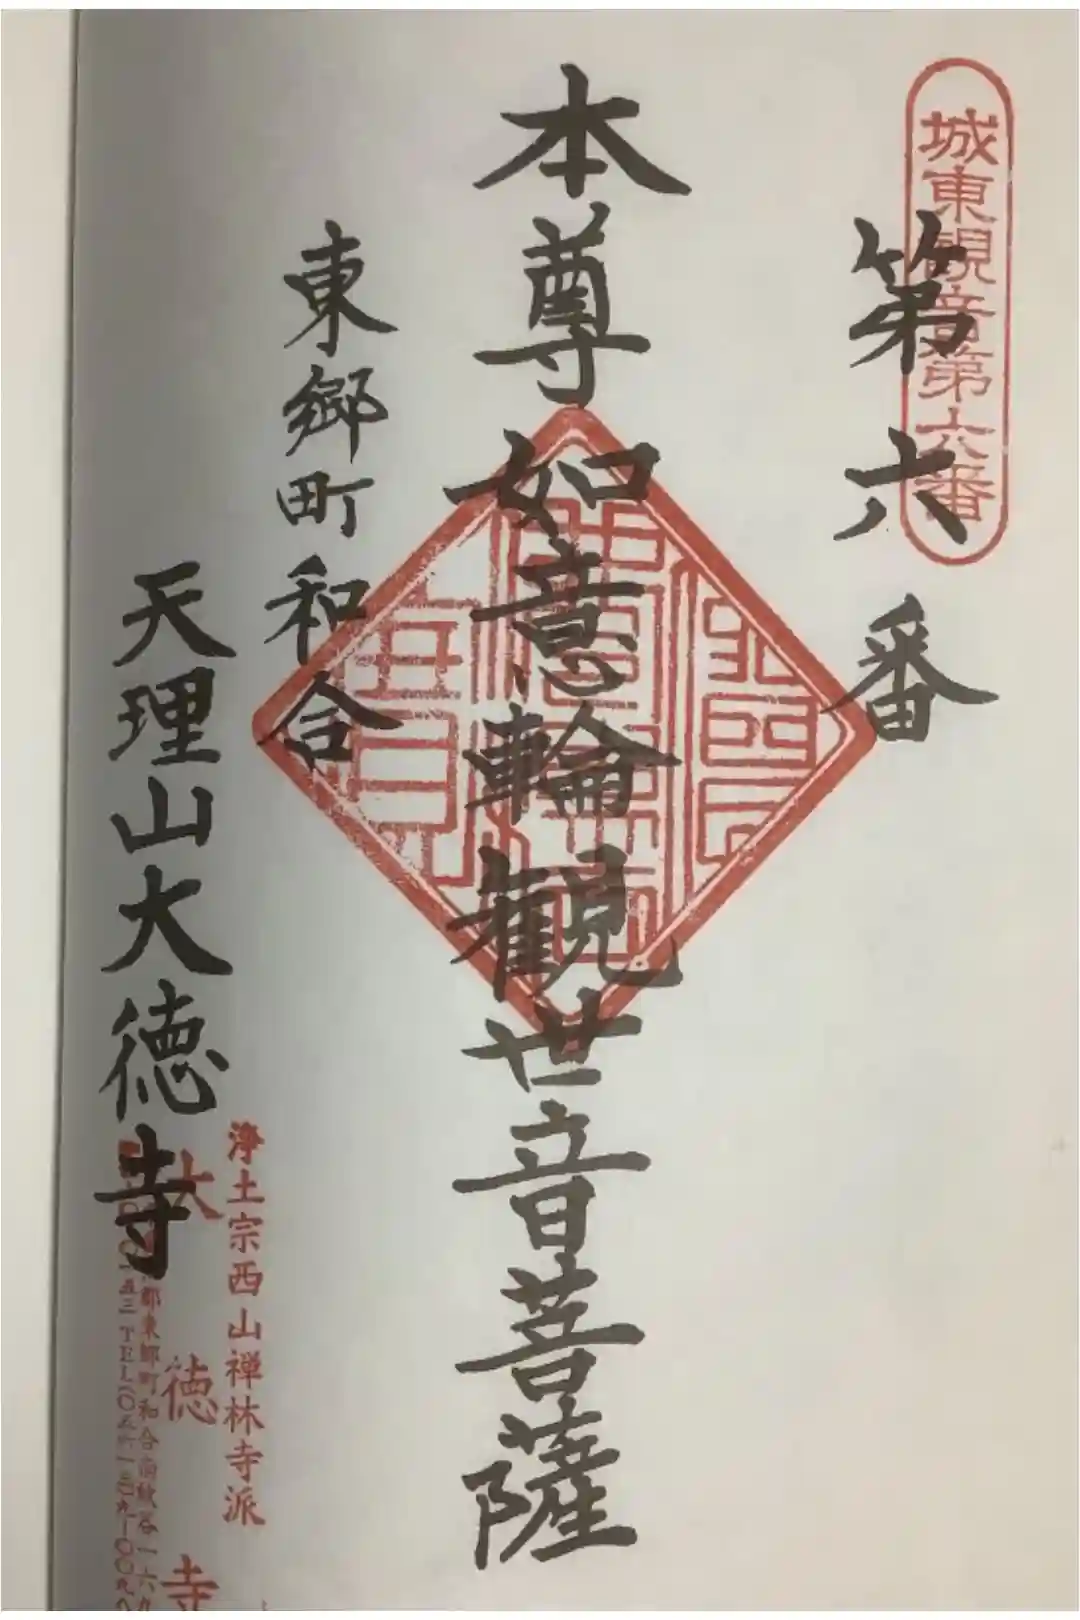 城東観音第六番
第六番
本尊如意輪観世音菩薩
東郷町和合
天理山大徳寺
浄土宗西山禅林寺派
大徳寺
郡東郷町和合
TEL